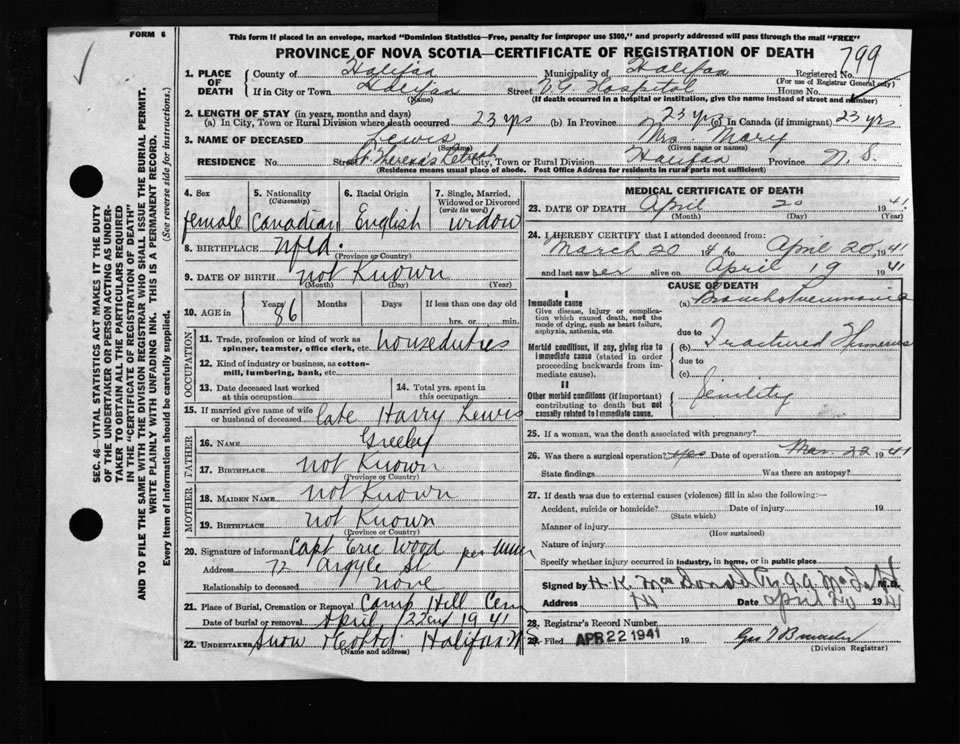 FORM 6
This form if placed in an envelope, marked "Dominion Statistics—Free, penalty for improper use $300," and properly addressed will pass through the mail "FREE"
PROVINCE OF NOVA SCOTIA—CERTIFICATE OF REGISTRATION OF DEATH
799
1. PLACE OF DEATH County of Halifax Municipality of Halifax Registered No.
(For use of Registrar General only)
If in City or Town Halifax Street V.G. Hospital House No.
(Name) (If death occurred in a hospital or institution, give the name instead of street and number)
2. LENGTH OF STAY (in years, months and days)
(a) In City, Town or Rural Division where death occurred 23 yrs (b) In Province 23 yrs (c) In Canada (if immigrant) 23 yrs
3. NAME OF DECEASED Lewis Mrs Mary
(Surname) (Given name or names)
RESIDENCE No. Street St. Theresa's Retreat City, Town or Rural Division Halifax Province N.S.
(Residence means usual place of abode. Post Office Address for residents in rural parts not sufficient)
4. Sex female
5. Nationality (Citizenship) Canadian
6. Racial Origin English
7. Single, Married, Widowed or Divorced (write the word) widow
8. BIRTHPLACE Nfld.
(Province or Country)
9. DATE OF BIRTH not Known
(Month) (Day) (Year)
10. AGE in Years 86 Months Days If less than one day old
hrs. or min.
OCCUPATION
11. Trade, profession or kind of work as spinner, teamster, office clerk, etc. houseduties
12. Kind of industry or business, as cotton-mill, lumbering, bank, etc.
13. Date deceased last worked at this occupation
14. Total yrs. spent in this occupation
15. If married give name of wife or husband of deceased late Harry Lewis
FATHER
16. NAME Greeley
17. BIRTHPLACE not Known
(Province or Country)
MOTHER
18. MAIDEN NAME not Known
19. BIRTHPLACE not Known
(Province or Country)
20. Signature of informant Capt Eric Wood per
Address 72 Argyle St
Relationship to deceased none
21. Place of Burial, Cremation or Removal Camp Hill Cem
Date of burial or removal April 22nd 1941
22. UNDERTAKER Snow & Co Ltd Halifax N.S.
(Name and address)
MEDICAL CERTIFICATE OF DEATH
23. DATE OF DEATH April 20 1941
(Month) (Day) (Year)
24. I HEREBY CERTIFY that I attended deceased from:
March 20 to April 20, 1941
and last saw her alive on April 19 1941
CAUSE OF DEATH
I
Immediate cause (a) Bronchopneumonia
Give disease, injury or complication which caused death, not the mode of dying, such as heart failure, asphyxia, asthenia, etc.
due to
Morbid conditions, if any, giving rise to immediate cause (stated in order proceeding backwards from immediate cause).
(b) Fractured Humerus
due to
(c)
II
Other morbid conditions (if important) contributing to death but not causally related to immediate cause.
Senility
25. If a woman, was the death associated with pregnancy?
26. Was there a surgical operation? yes Date of operation Mar. 22 1941
State findings Was there an autopsy?
27. If death was due to external causes (violence) fill in also the following:—
Accident, suicide or homicide? Date of injury 19
(State which)
Manner of injury
(How sustained)
Nature of injury
Specify whether injury occurred in industry, in home, or in public place
Signed by H. K. MacDonald M.D.
Address Date April 20 1941
28. Registrar's Record Number
29. Filed APR 22 1941 19
(Division Registrar)
SEC. 46—VITAL STATISTICS ACT MAKES IT THE DUTY OF THE UNDERTAKER OR PERSON ACTING AS UNDERTAKER TO OBTAIN ALL THE PARTICULARS REQUIRED IN THE "CERTIFICATE OF REGISTRATION OF DEATH"
AND TO FILE THE SAME WITH THE DIVISION REGISTRAR WHO SHALL ISSUE THE BURIAL PERMIT.
WRITE PLAINLY WITH UNFADING INK. THIS IS A PERMANENT RECORD.
Every item of information should be carefully supplied. (See reverse side for instructions.)